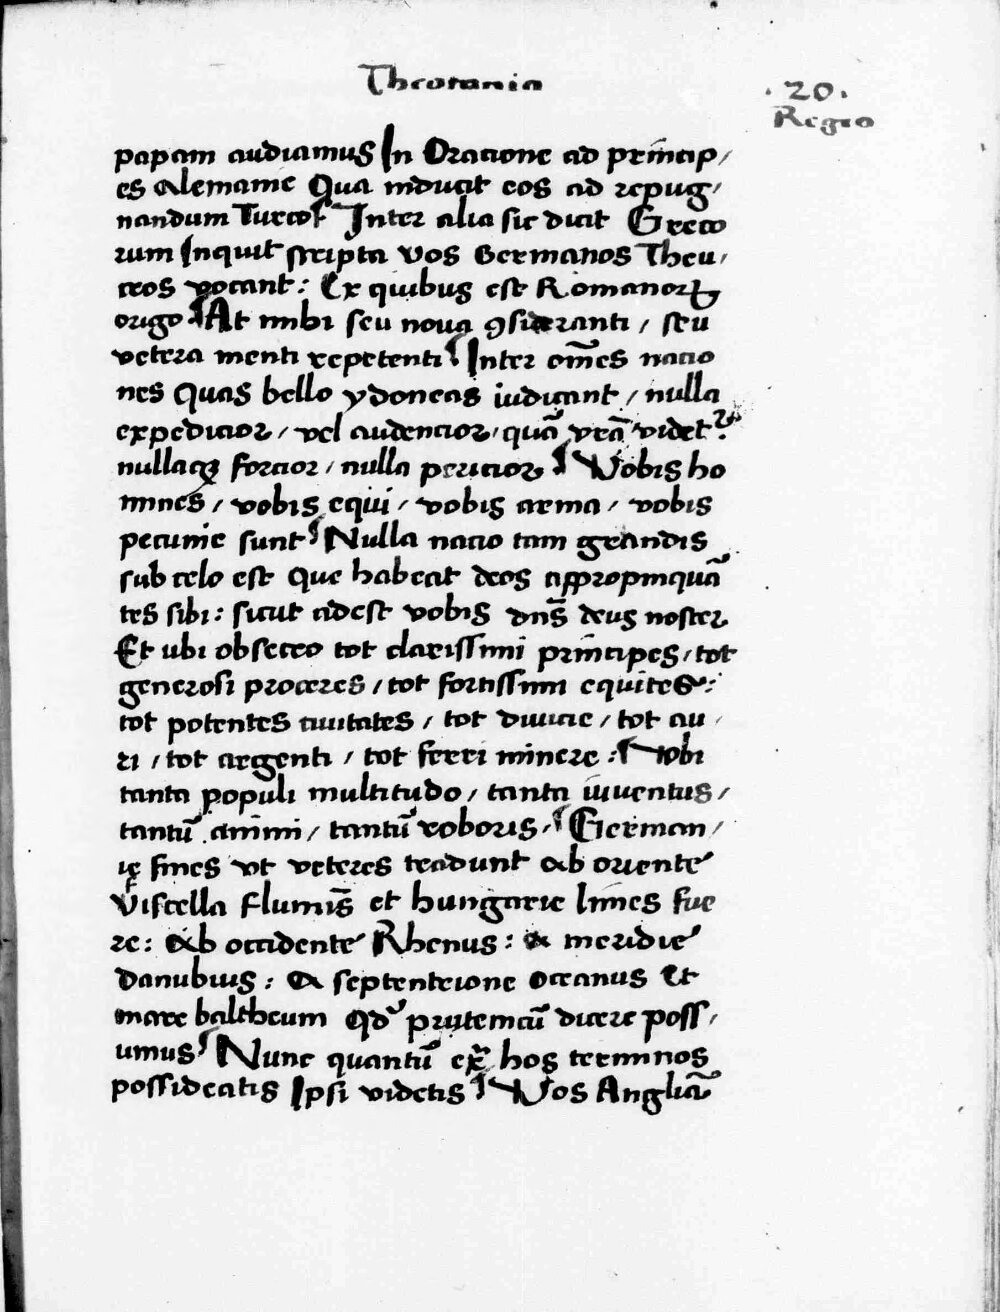 Theotania
.20.
Regio
papam audiamus In Oracione ad princip/
es Alemanie Qua inducit eos ad repug/
nandum Turcos Inter alia sic dicit Greco
rum Inquit scripta vos Germanos Theu/
tros vocant: Ex quibus est Romanoꝝ
origo At mihi seu noua ꝯsideranti / seu
vetera menti repetenti Inter om̄es nacio
nes Quas bello ydoneas iudicant / nulla
expedicior / vel audencior / quā vr̄a videt̉
nullaqꝫ forcior / nulla pericior Vobis ho
mines / vobis equi / vobis arma / vobis
pecunie sunt Nulla nacio tam grandis
sub celo est Que habeat deos appropinquā
tes sibi: sicut adest vobis dn̄s deus noster
Et ubi obsecro tot clarissimi principes / tot
generosi proceres / tot fortissimi equites:
tot potentes ciuitates / tot diuicie / tot au /
ri / tot argenti / tot ferri minere: Vbi
tanta populi multitudo / tanta iuuentus /
tantū animi / tantū roboris / German /
ię fines vt veteres tradunt Ab oriente
Viscella fluminis̄ et hungarie limes fue
re: Ab occidente Rhenus: A meridie
danubius: A septentrione Oceanus Et
mare baltheum Qd̉ prutenicū dicere poss /
umus Nunc quantū ex̄ hos terminos
possideatis Ipsi videtis Vos Angliā